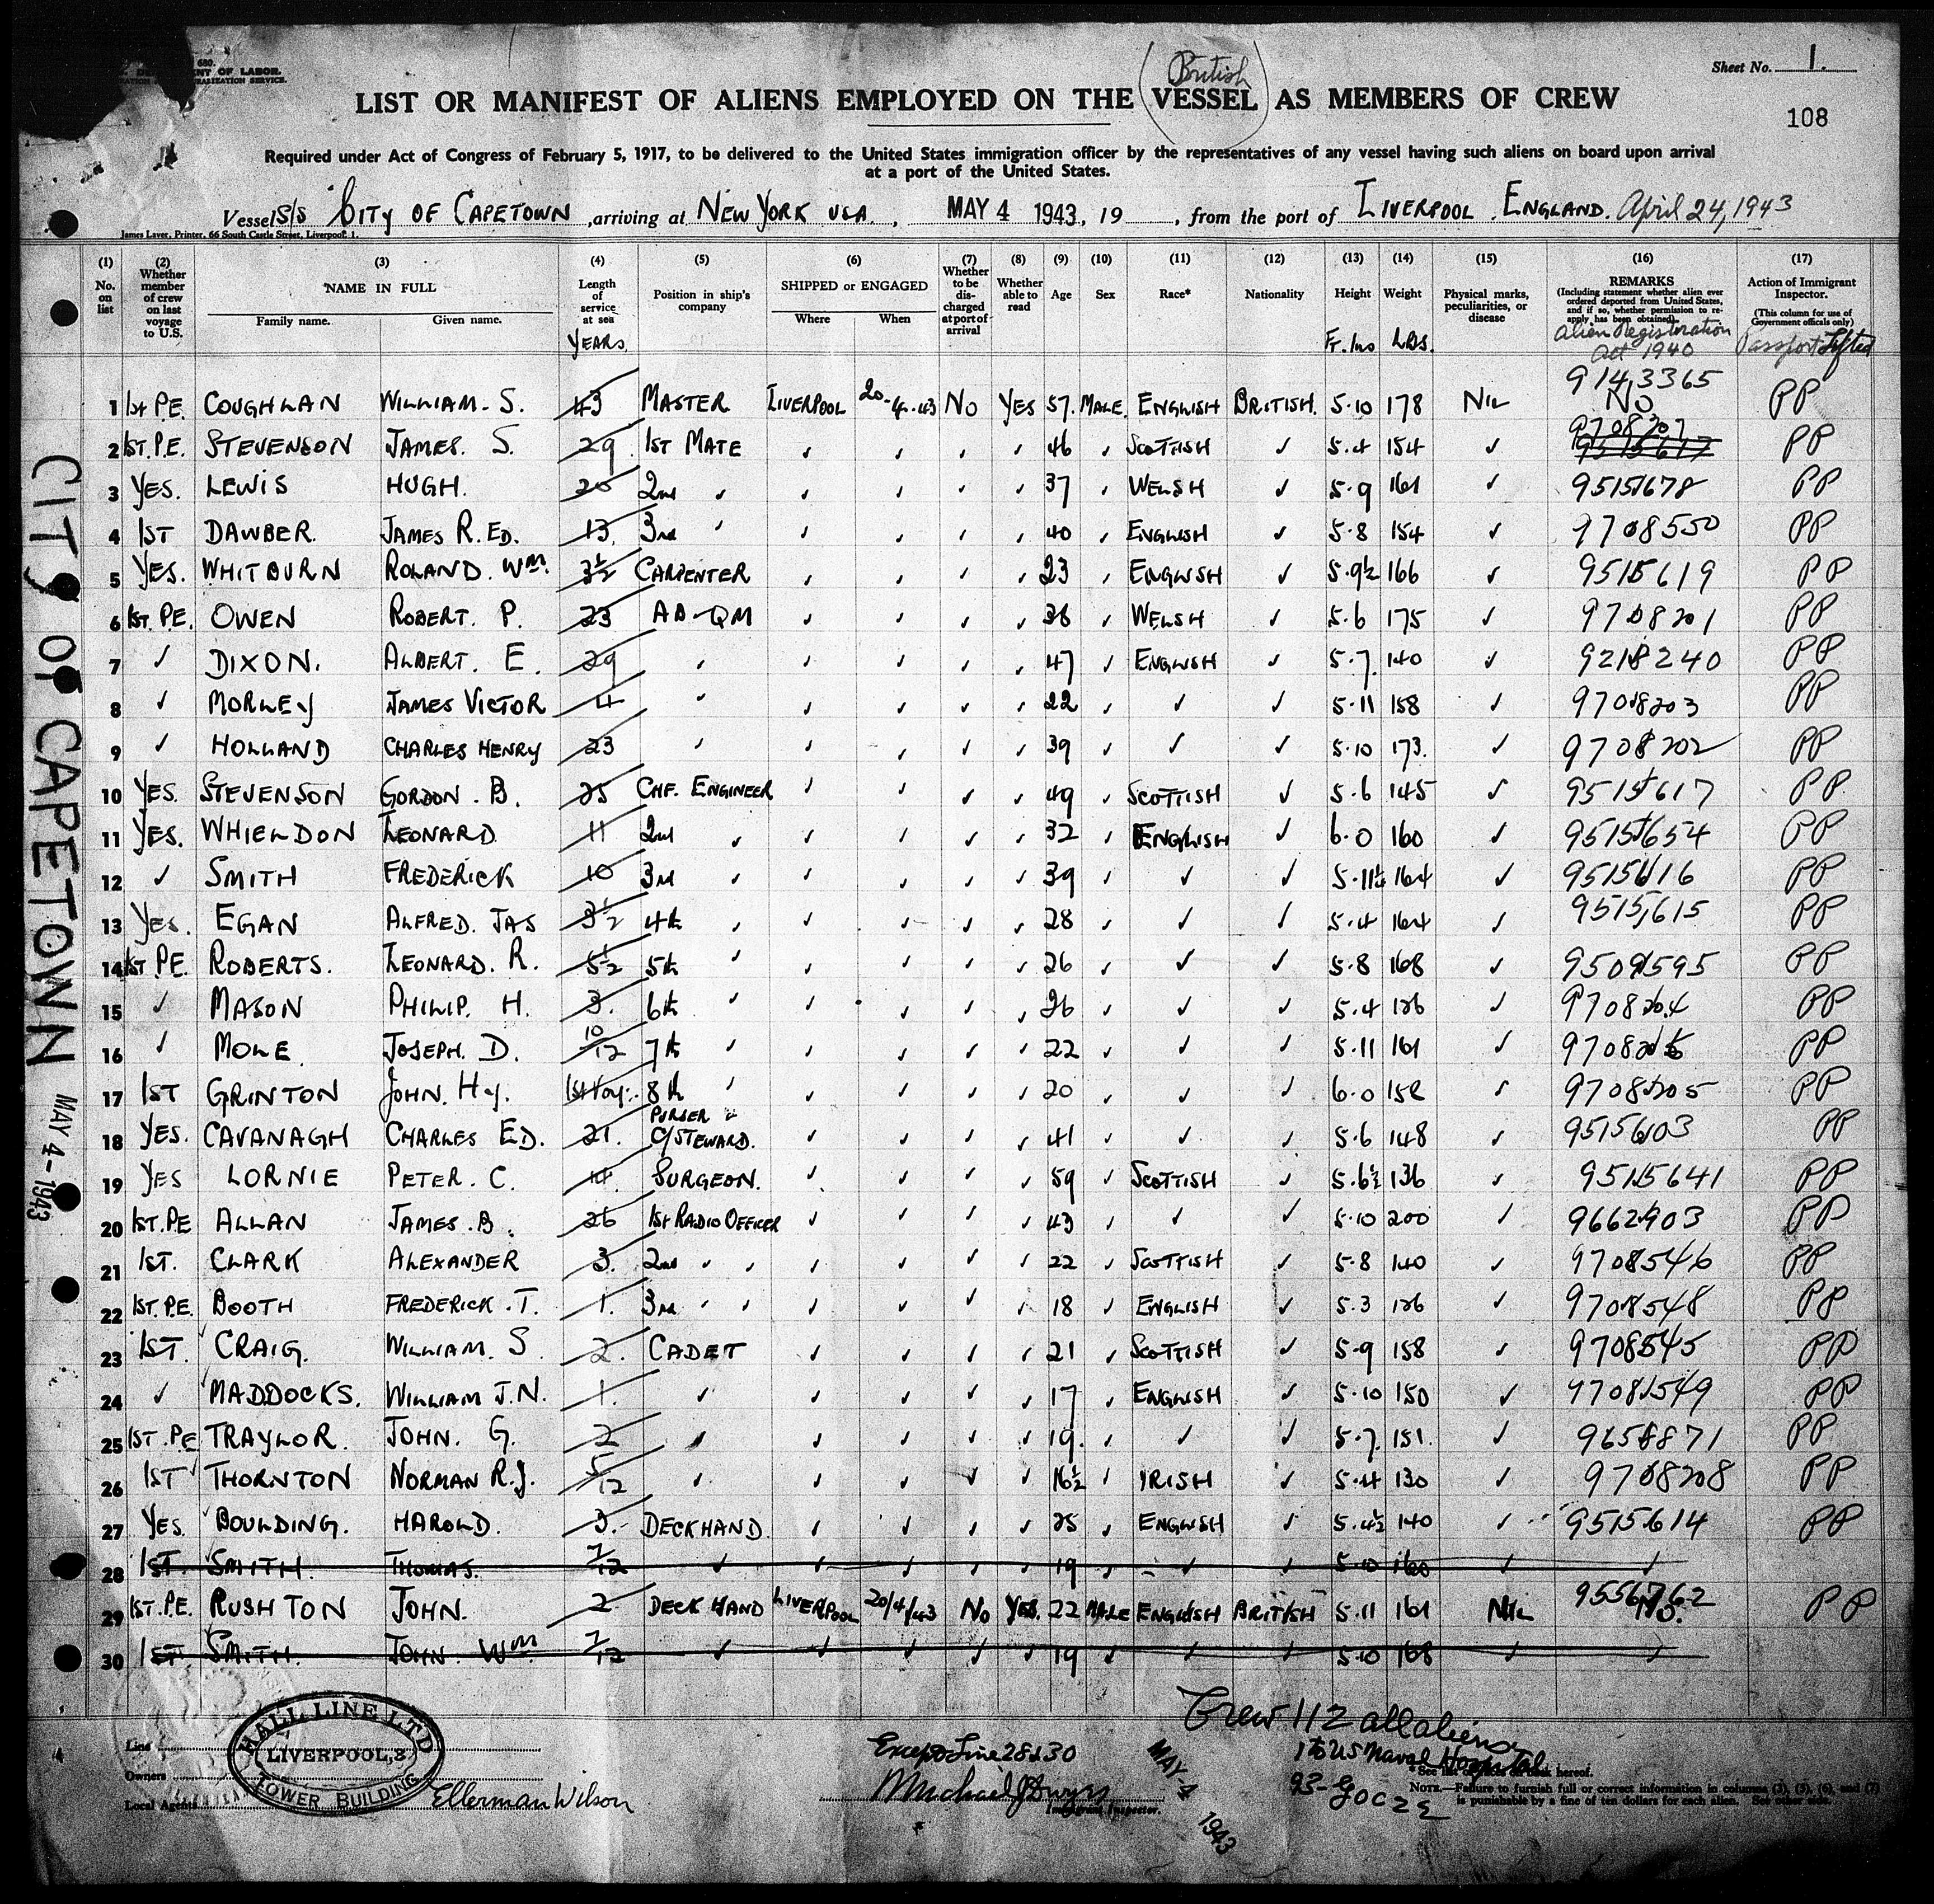 680.
ENT OF LABOR.
RALIZATION SERVICE.
Sheet No. 1.
(British)
LIST OR MANIFEST OF ALIENS EMPLOYED ON THE VESSEL AS MEMBERS OF CREW
108
Required under Act of Congress of February 5, 1917, to be delivered to the United States immigration officer by the representatives of any vessel having such aliens on board upon arrival
at a port of the United States.
Vessel S/S CITY OF CAPETOWN, arriving at NEW YORK USA, MAY 4 1943, 19, from the port of LIVERPOOL. ENGLAND. April 24, 1943
James Laver, Printer, 66 South Castle Street, Liverpool 1.
(1) No. on list (2) Whether member of crew on last voyage to U.S. (3) NAME IN FULL Family name. Given name. (4) Length of service at sea YEARS. (5) Position in ship's company (6) SHIPPED or ENGAGED Where When (7) Whether to be discharged at port of arrival (8) Whether able to read (9) Age (10) Sex (11) Race* (12) Nationality (13) Height Ft. Ins (14) Weight LBS. (15) Physical marks, peculiarities, or disease (16) REMARKS (Including statement whether alien ever ordered deported from United States, and if so, whether permission to reapply has been obtained) Alien Registration Act 1940 (17) Action of Immigrant Inspector. (This column for use of Government officials only) Passport Lifted
1 1st P.E. COUGHLAN WILLIAM. S. 43 MASTER LIVERPOOL 20-4-43 No YES 57. MALE. ENGLISH BRITISH. 5.10 178 NIL 9143365 No PP
2 1ST. P.E. STEVENSON JAMES. S. 29 1ST MATE ✓ ✓ ✓ ✓ 46 ✓ SCOTTISH ✓ 5.4 154 ✓ 9708207 PP
3 YES. LEWIS HUGH. 20 2nd ✓ ✓ ✓ ✓ ✓ 37 ✓ WELSH ✓ 5.9 161 ✓ 9515678 PP
4 1ST DAWBER. JAMES R. ED. 13. 3rd ✓ ✓ ✓ ✓ ✓ 40 ✓ ENGLISH ✓ 5.8 154 ✓ 9708550 PP
5 YES. WHITBURN ROLAND. WM. 3½ CARPENTER ✓ ✓ ✓ ✓ 23 ✓ ENGLISH ✓ 5.9½ 166 ✓ 9515619 PP
6 1ST. P.E. OWEN ROBERT. P. 23 AB-QM ✓ ✓ ✓ ✓ 38 ✓ WELSH ✓ 5.6 175 ✓ 9708201 PP
7 ✓ DIXON. ALBERT. E. 29 ✓ ✓ ✓ ✓ ✓ 47 ✓ ENGLISH ✓ 5.7. 140 ✓ 9218240 PP
8 ✓ MORLEY JAMES VICTOR 4 ✓ ✓ ✓ ✓ ✓ 22 ✓ ✓ ✓ 5.11 158 ✓ 9708203 PP
9 ✓ HOLLAND CHARLES HENRY 23 ✓ ✓ ✓ ✓ ✓ 39 ✓ ✓ ✓ 5.10 173. ✓ 9708202 PP
10 YES. STEVENSON GORDON. B. 25 CHF. ENGINEER ✓ ✓ ✓ ✓ 49 ✓ SCOTTISH ✓ 5.6 145 ✓ 9515617 PP
11 YES. WHIELDON LEONARD 11 2nd ✓ ✓ ✓ ✓ ✓ 32 ✓ ENGLISH ✓ 6.0 160 ✓ 9515654 PP
12 ✓ SMITH FREDERICK 10 3rd ✓ ✓ ✓ ✓ ✓ 39 ✓ ✓ ✓ 5.11½ 164 ✓ 9515616 PP
13 YES. EGAN ALFRED. JAS 3½ 4th ✓ ✓ ✓ ✓ ✓ 28 ✓ ✓ ✓ 5.4 164 ✓ 9515615 PP
14 1ST P.E. ROBERTS. LEONARD. R. 5½ 5th ✓ ✓ ✓ ✓ ✓ 26 ✓ ✓ ✓ 5.8 168 ✓ 9509595 PP
15 ✓ MASON PHILIP. H. 3. 6th ✓ ✓ ✓ ✓ ✓ 26 ✓ ✓ ✓ 5.4 126 ✓ 9708204 PP
16 ✓ MOLE JOSEPH. D. 10/12 7th ✓ ✓ ✓ ✓ ✓ 22 ✓ ✓ ✓ 5.11 161 ✓ PP
17 1ST GRINTON JOHN. Hy. 1st Voy. 8th ✓ ✓ ✓ ✓ ✓ 20 ✓ ✓ ✓ 6.0 158 ✓ 9708205 PP
18 YES. CAVANAGH CHARLES ED. 21. PURSER & C/STEWARD. ✓ ✓ ✓ ✓ 41 ✓ ✓ ✓ 5.6 148 ✓ 9515603 PP
19 YES LORNIE PETER. C. 14. SURGEON. ✓ ✓ ✓ ✓ 59 ✓ SCOTTISH ✓ 5.6½ 136 ✓ 9515641 PP
20 1ST. PE ALLAN JAMES. B. 26 1st RADIO OFFICER ✓ ✓ ✓ ✓ 43 ✓ ✓ ✓ 5.10 200 ✓ 9662903 PP
21 1ST. CLARK ALEXANDER 3. 2nd ✓ ✓ ✓ ✓ ✓ ✓ 22 ✓ SCOTTISH ✓ 5.8 140 ✓ 9708546 PP
22 1ST. P.E. BOOTH FREDERICK. T. 1. 3rd ✓ ✓ ✓ ✓ ✓ ✓ 18 ✓ ENGLISH ✓ 5.3 126 ✓ 9708548 PP
23 1ST. CRAIG. WILLIAM. S. 2. CADET ✓ ✓ ✓ ✓ 21 ✓ SCOTTISH ✓ 5.9 158 ✓ 9708545 PP
24 ✓ MADDOCKS. WILLIAM J.N. 1. ✓ ✓ ✓ ✓ ✓ 17 ✓ ENGLISH ✓ 5.10 150 ✓ 9708549 PP
25 1ST. P.E TRAYLOR. JOHN. G. 2 ✓ ✓ ✓ ✓ ✓ 19. ✓ ✓ ✓ 5.7. 151. ✓ 9658871 PP
26 1ST THORNTON NORMAN R.J. 5/12 ✓ ✓ ✓ ✓ ✓ 16½ ✓ IRISH ✓ 5.4 130 ✓ 9708208 PP
27 YES. BOULDING. HAROLD. 3. DECKHAND. ✓ ✓ ✓ ✓ 25 ✓ ENGLISH ✓ 5.4½ 140 ✓ 9515614 PP
28 1ST. SMITH. THOMAS. 7/12 ✓ ✓ ✓ ✓ ✓ 19 ✓ ✓ ✓ 5.10 160 ✓ ✓
29 1ST. P.E. RUSHTON JOHN. 2 DECK HAND LIVERPOOL 20/4/43 No YES. 22 MALE ENGLISH BRITISH 5.11 161 NIL 9556762 No. PP
30 1ST SMITH. JOHN. WM. 7/12 ✓ ✓ ✓ ✓ ✓ 19 ✓ ✓ ✓ 5.10 168 ✓ ✓
CITY OF CAPETOWN MAY 4-1943
Crew 112 all aliens
1 to US Naval Hospital
Except Line 28 & 30
Line
Owners
Local Agents Ellerman Wilson
HALL LINE LTD
LIVERPOOL, 2
TOWER BUILDING
Michael J Dwyer
Immigrant Inspector.
MAY 4 1943
*See list of races on back hereof.
NOTE.—Failure to furnish full or correct information in columns (3), (5), (6), and (7)
is punishable by a fine of ten dollars for each alien. See other side.